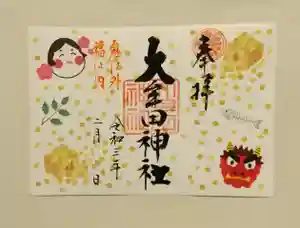 奉拝
大牟田神社
鬼は外
福は内
令和三年
二月 日